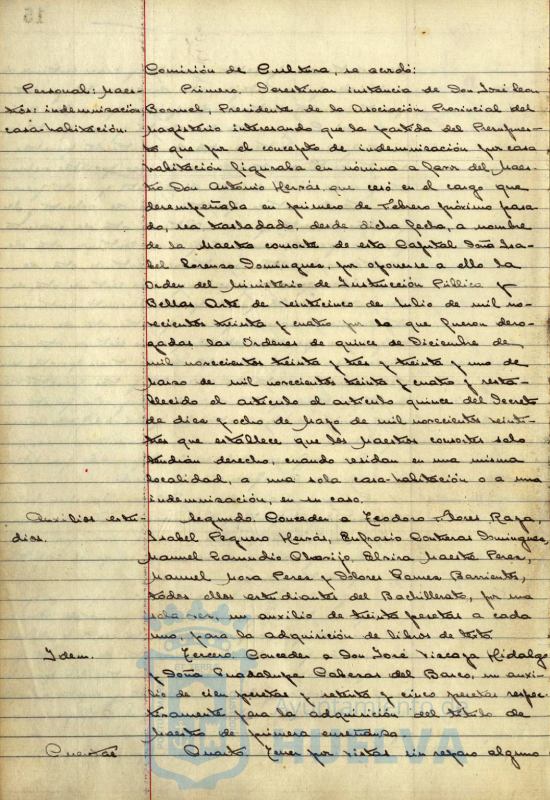 15
Comisión de Cultura, se acordó:
Personal: Maes-
tros: indemnización
casa-habitación.
Primero. Desestimar instancia de Don José Leon
Borruel, Presidente de la Asociación Provincial del
Magisterio interesando que la partida del Presupues-
to que por el concepto de indemnización por casa
habitación figuraba en nómina a favor del Maes-
tro Don Antonio Hervás, que cesó en el cargo que
desempeñaba en primero de Febrero próximo pasa-
do, sea trasladado, desde dicha fecha, a nombre
de la Maestra consorte de esta Capital Doña Isa-
bel Lorenzo Domínguez, por oponerse a ello la
Orden del Ministerio de Instrucción Pública y
Bellas Artes de veinticinco de Julio de mil no-
vecientos treinta y cuatro por la que fueron dero-
gadas las Ordenes de quince de Diciembre de
mil novecientos treinta y tres y treinta y uno de
Marzo de mil novecientos treinta y cuatro y resta-
blecido el artículo el artículo quince del Decreto
de diez y ocho de Mayo de mil novecientos veinti-
trés que establece que los Maestros consortes solo
tendrán derecho, cuando residan en una misma
localidad, a una sola casa-habitación o a una
indemnización, en su caso.
Auxilios estu-
dios.
Segundo. Conceder a Teodoro Flores Raya,
Isabel Peguero Hervás, Eufrasio Contreras Domínguez,
Manuel Zamudio Elvira Maestre Perez,
Manuel Mora Perez y Dolores Gamez Barrientos,
todos ellos estudiantes del Bachillerato, por una
sola vez, un auxilio de treinta pesetas a cada
uno, para la adquisición de libros de texto.
Idem.
Tercero. Conceder a Don José Vizcaya Hidalgo
y Doña Guadalupe Cabezas del Barco, un auxi-
lio de cien pesetas y setenta y cinco pesetas respec-
tivamente para la adquisición del título de
Maestro de primera enseñanza.
Cuentas
Cuarto. Tener por vistas sin reparo alguno
Ayuntamiento de
HUELVA